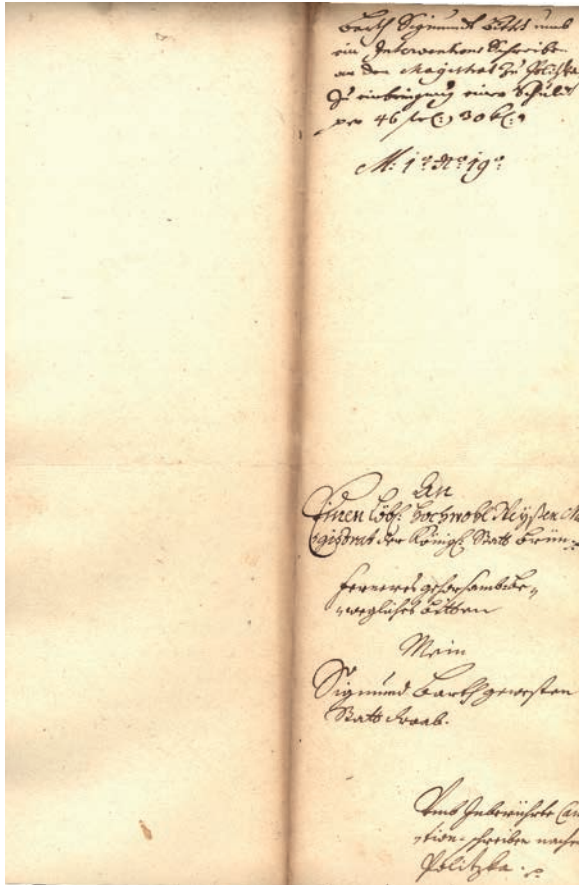 Barth Sigmundt bittet umb
ein Interventions Schreiben
an den Magistrat zu Politzka
zu einbringung einer Schuldt
per 46 fl(:) 30 k(:)
M: 1º: Nº: 19º
An
Einen Löbl: Hochwohl Weysen Ma
gistrat der Königl: Statt Brün
ferneres gehorsambs be„
„wegliches bitten
Mein
Sigmund Barth gewesten
Statt
Umb Inberührte
„tion-schreiben nacher
Politzka.